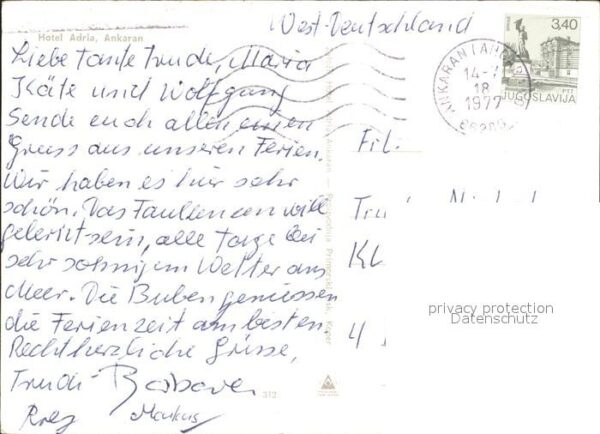 West-Deutschland
Hotel Adria, Ankaran
Liebe Tante Trude, Maria
Käte und Wolfgang
Sende euch allen einen
Gruss aus unseren Ferien.
Wir haben es hier sehr
schön. Das Faullenzen will
gelernt sein, alle Tage bei
sehr sonnigem Wetter ans
Meer. Die Buben geniessen
die Ferienzeit am besten.
Recht herzliche Grüsse,
Trudi
Markus
312
3,40
ANKARAN
14-7
18
1977
JUGOSLAVIJA
PTT
privacy protection
Datenschutz